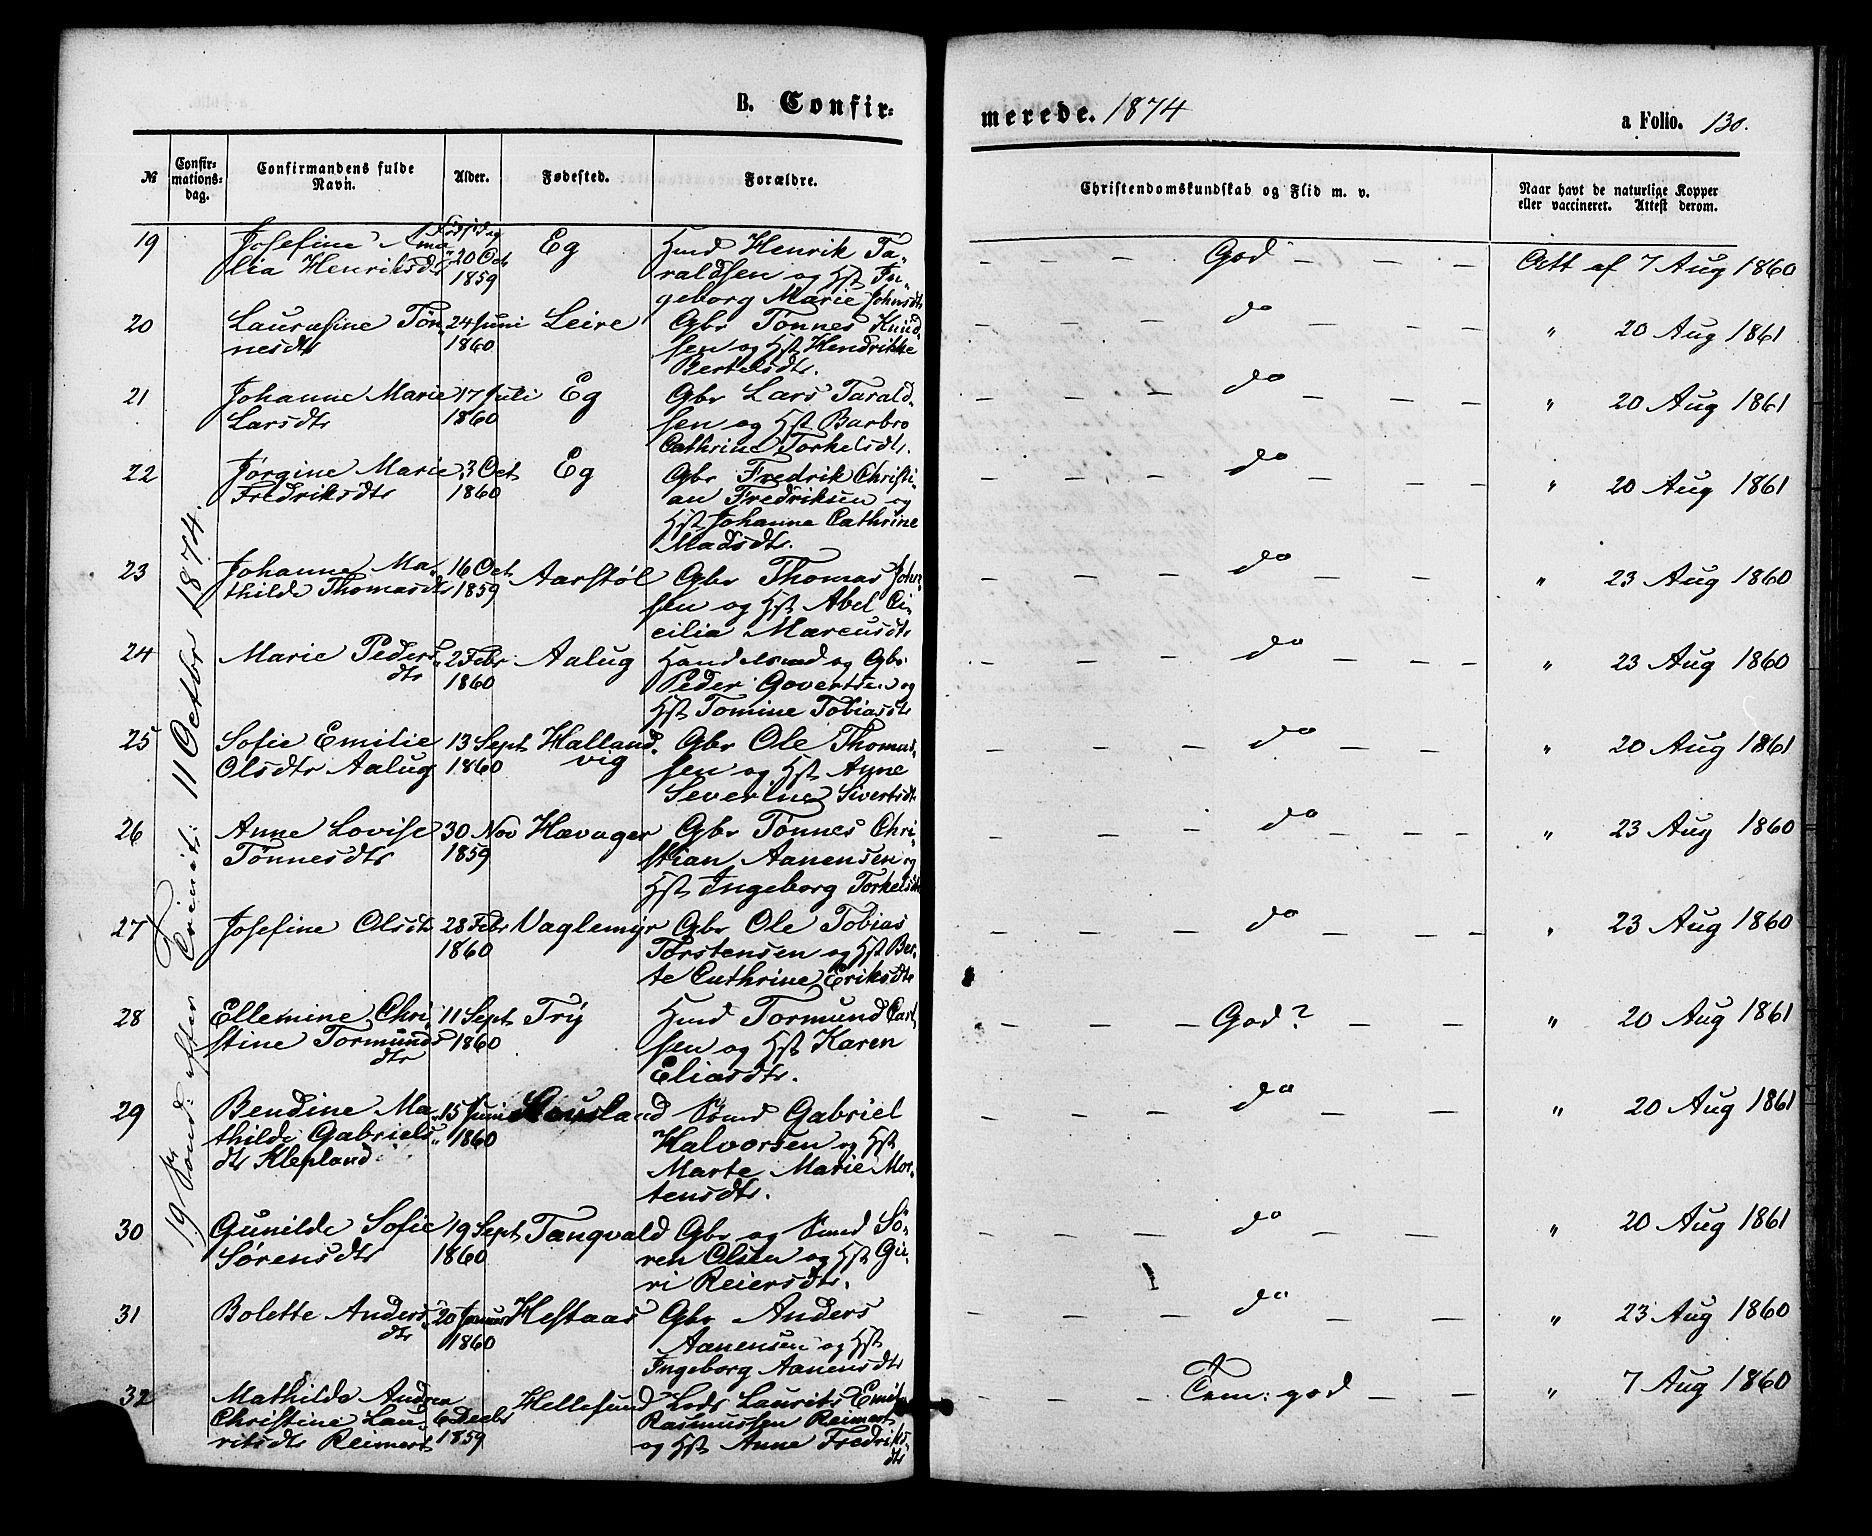 B. Confir-
merede. 1874
a Folio. 130.
№
Confir-
mations-
dag.
Confirmandens fulde
Navn.
Alder.
Fødested.
Forældre.
Christendomskundskab og Flid m. v.
Naar havt de naturlige Kopper
eller vaccineret. Attest derom.
19de Sønd: efter Trinit: 11 Octbr 1874.
19 Josefine Ama-
lia Henriksdtr
Fødsdag
20 Oct
1859
Eg
Hmd Henrik Ta-
raldsen og Hst In-
geborg Marie Johnsdtr
— — — God — — — Att af 7 Aug 1860
20 Laurasine Tøn-
nesdtr
24 Juni
1860
Leire
Gbr Tønnes Knud-
sen og Hst Hendrikke
Bertelsdtr.
— — — do — — — " 20 Aug 1861
21 Johanne Marie
Larsdtr
17 Juli
1860
Eg
Gbr Lars Tarald-
sen og Hst Barbro
Cathrine Torkelsdtr.
— — — do — — — " 20 Aug 1861
22 Jørgine Marie
Fredriksdtr
3 Oct
1860
Eg
Gbr Fredrik Christi-
an Fredriksen og
Hst Johanne Cathrine
Madsdtr.
— — — do — — — " 20 Aug 1861
23 Johanne Ma-
thilde Thomasdtr
16 Oct
1859
Aarstøl
Gbr Thomas John-
sen og Hst Abel Ci-
cilia Marcusdtr
— — — do — — — " 23 Aug 1860
24 Marie Peders-
dtr
2 Febr
1860
Aalug
Handelsmd og Gbr
Peder Govertsen og
Hst Tomine Tobiasdtr
— — — do — — — " 23 Aug 1860
25 Sofie Emilie
Olsdtr Aalug
13 Sept
1860
Halland-
vig
Gbr Ole Thomas-
sen og Hst Anne
Severine Sivertsdtr
— — — do — — — " 20 Aug 1861
26 Anne Lovise
Tønnesdtr
30 Nov
1859
Hævager
Gbr Tønnes Chri-
stian Aanensen og
Hst Ingeborg Torkelsdtr
— — — do — — — " 23 Aug 1860
27 Josefine Olsdtr
28 Febr
1860
Vaglemyr
Gbr Ole Tobias
Torstensen og Hst Ber-
te Cathrine Eriksdtr
— — — do — — — " 23 Aug 1860
28 Ellemine Chri-
stine Tormunds-
dtr
11 Sept
1860
Try
Hmd Tormund Carl-
sen og Hst Karen
Eliasdtr.
— — — God? — — " 20 Aug 1861
29 Bendine Ma-
thilde Gabriels-
dtr Klepland
15 Juni
1860
Sømd Gabriel
Halvorsen og Hst
Marte Marie Mor-
tensdtr.
— — — do — — " 20 Aug 1861
30 Gunilde Sofie
Sørensdtr
19 Sept
1860
Tangvald
Gbr og Sømd Sø-
ren Olsen og Hst Gu-
ri Reiersdtr.
— — — do — — " 20 Aug 1861
31 Bolette Anders-
dtr
20 Januar
1860
Hestaas
Gbr Anders
Aanensen og Hst
Ingeborg Aanensdtr
— — — do — — " 23 Aug 1860
32 Mathilde Andrea
Christine Lau-
ritsdtr Reimert
6 Decbr
1859
Hellesund
Lods Laurits Emil
Rasmussen Reimert
og Hst Anne Fredriks-
dtr
— — — Tem: god — — " 7 Aug 1860